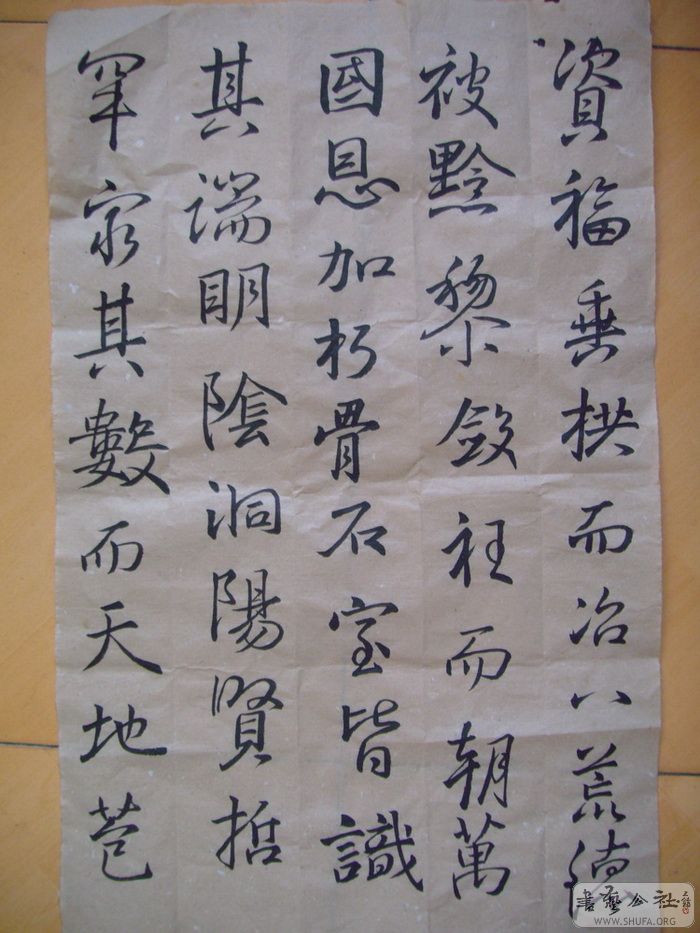 資福垂拱而治八荒德
被黔黎斂衽而朝萬
國恩加朽骨石室皆識
其端明陰洞陽賢哲
罕窮其數而天地苞
書藝公社
WWW.SHUFA.ORG